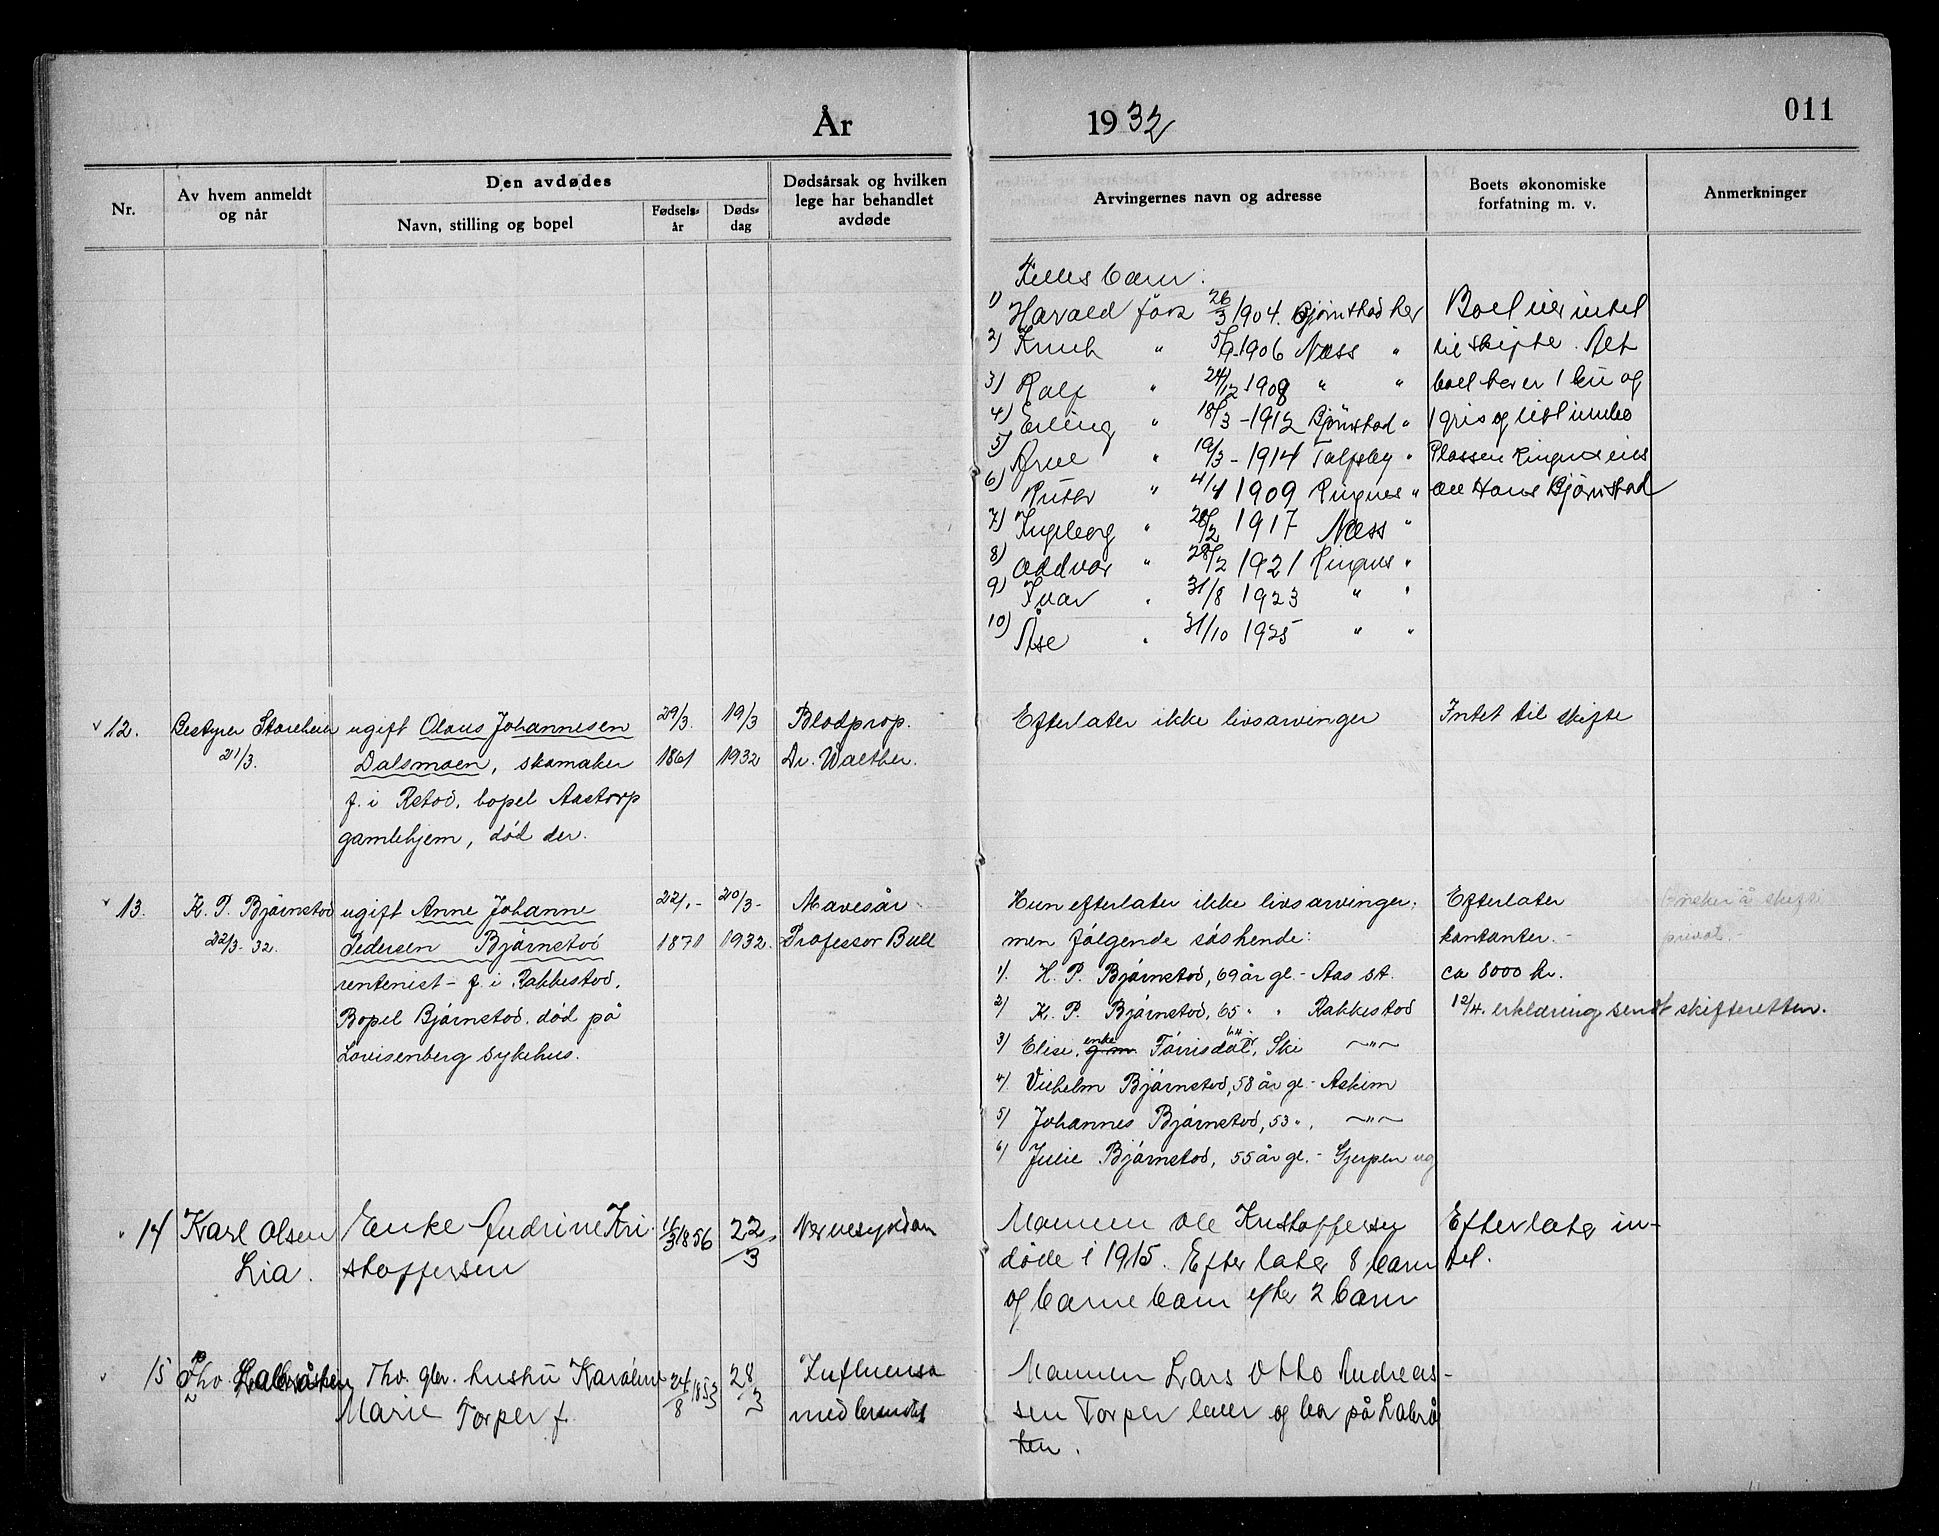 År 1932
011
Nr.
Av hvem anmeldt
og når
Den avdødes
Navn, stilling og bopel
Fødsels-
år
Døds-
dag
Dødsårsak og hvilken
lege har behandlet
avdøde
Arvingernes navn og adresse
Boets økonomiske
forfatning m. v.
Anmerkninger
Felles barn:
1) Harald født 26/3 1904. Bjørnstad her
2) Knut " 5/9-1906 Næss "
3) Rolf " 24/12 1908 " "
4) Erling " 18/3-1912 Bjørnstad "
5) Arne " 19/3-1914 "
6) Ruth " 4/4 1909 Ringnes "
7) Ingeborg " 28/2 1917 Næss "
8) Oddvar " 28/2 1921 Ringnes "
9) Ivar " 31/8 1923 " "
10) Åse " 31/10 1925 " "
Boet eier intet
til skifte. Alt
boet har er 1 ku og
1 gris og litt innbo
Plassen Ringnes eies
av Hans Bjørnstad
12.
Bestyrer Storeheier
21/3.
ugift Olaus Johannesen
Dalsmoen, skomaker
f. i Rstad, bopel Aastorp
gamlehjem, død der.
29/3.
1861
19/3
1932
Blodprop.
Dr. Walther.
Efterlater ikke livsarvinger
Intet til skifte
13.
K. P. Bjørnstad
22/3-32.
ugift Anne Johanne
Pedersen Bjørnstad
rentenist - f. i Rakkestad.
Bopel Bjørnstad. død på
Lovisenberg sykehus.
22/.-
1871
20/3-
1932.
Mavesår
Professor Bull
Hun efterlater ikke livsarvinger,
men følgende søskende:
1). H. P. Bjørnstad, 69 år gl. - Aas st.
2) K. P. Bjørnstad, 65 " " Rakkestad
3) Elise, enke g.m. Tørrisdal, 64 Ski —"—
4) Vilhelm Bjørnstad, 58 år gl. - Askim
5) Johannes Bjørnstad, 53 ". —"—
6) Julie Bjørnstad, 55 år gl. - Gjerpen ug
Efterlater
kontanter. -
ca 8000 kr.
12/4. erklæring sendt skifteretten.
Ønsker å skifte
privat. -
14
Karl Olsen
Lia.
Enke Andrine Kri
stoffersen
11/3 1856
22/3
Nervesykdom
Mannen Ole Kristoffersen
døde i 1915. Efterlater 8 barn
og barnebarn efter 2 barn
Efterlater in-
tet.
15
Thv. gbr. hustru Karoline
Marie Torper f.
24/8 1853
28/3
Influensa
med
Mannen Lars Otto Andreas-
sen Torper lever og bor på Labrå
ten.